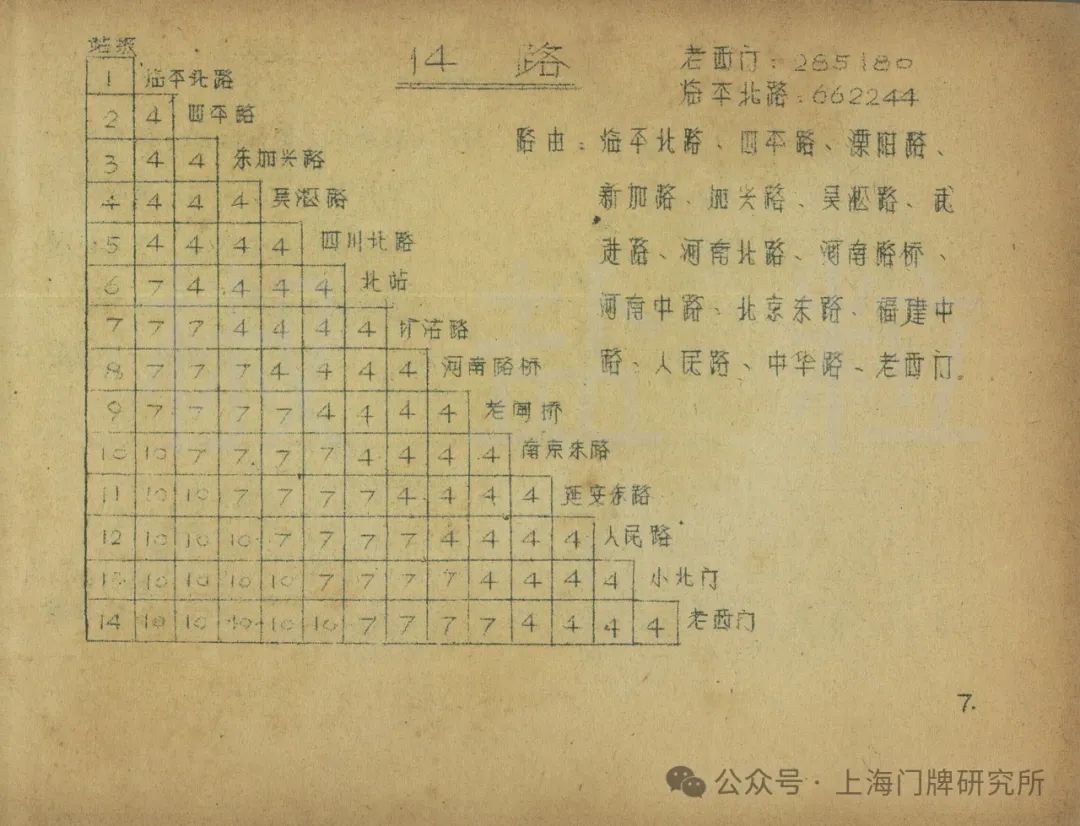 站级
14 路
老西门:285180
临平北路:662244
1 临平北路
2 4 四平路
3 4 4 东加兴路
4 4 4 4 吴淞路
5 4 4 4 4 四川北路
6 7 4 4 4 4 北站
7 7 7 4 4 4 4 圹沽路
8 7 7 7 4 4 4 4 河南路桥
9 7 7 7 7 4 4 4 4 老闸桥
10 10 7 7 7 7 4 4 4 4 南京东路
11 10 10 7 7 7 7 4 4 4 4 延安东路
12 10 10 10 7 7 7 7 4 4 4 4 人民路
13 10 10 10 10 7 7 7 7 4 4 4 4 小北门
14 10 10 10 10 10 7 7 7 7 4 4 4 4 老西门
路由:临平北路、四平路、溧阳路、
新加路、加兴路、吴淞路、武
进路、河南北路、河南路桥、
河南中路、北京东路、福建中
路、人民路、中华路、老西门。
7.
公众号·上海门牌研究所